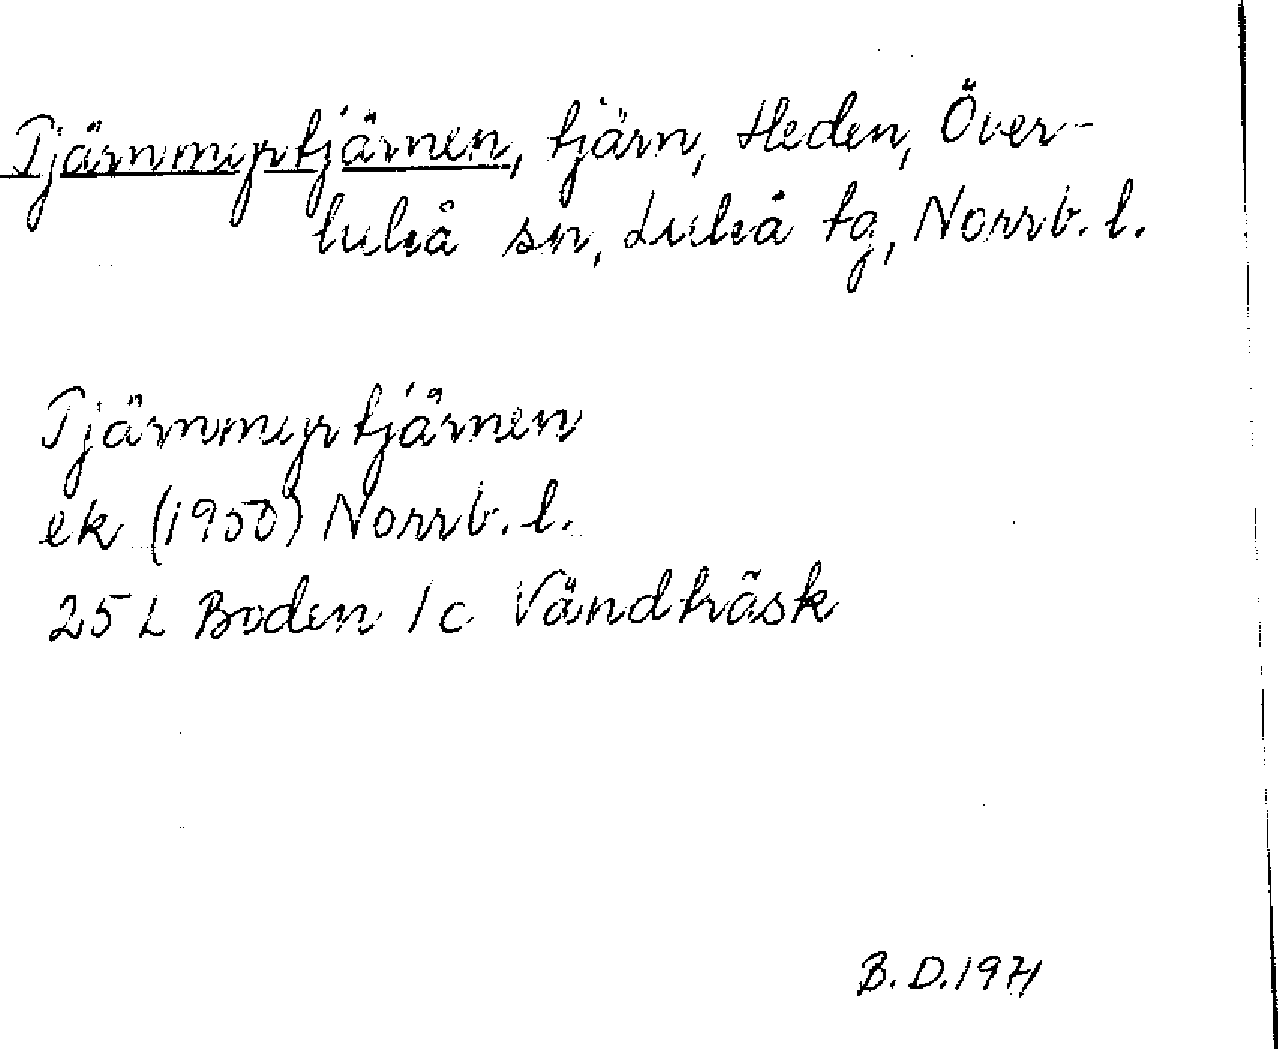 Tjärnmyrtjärnen, tjärn, Heden, Över-
luleå sn, Luleå tg, Norrb. l.
Tjärnmyrtjärnen
ek (1950) Norrb. l.
25 L Boden 1 c Vändträsk
B. D. 1971